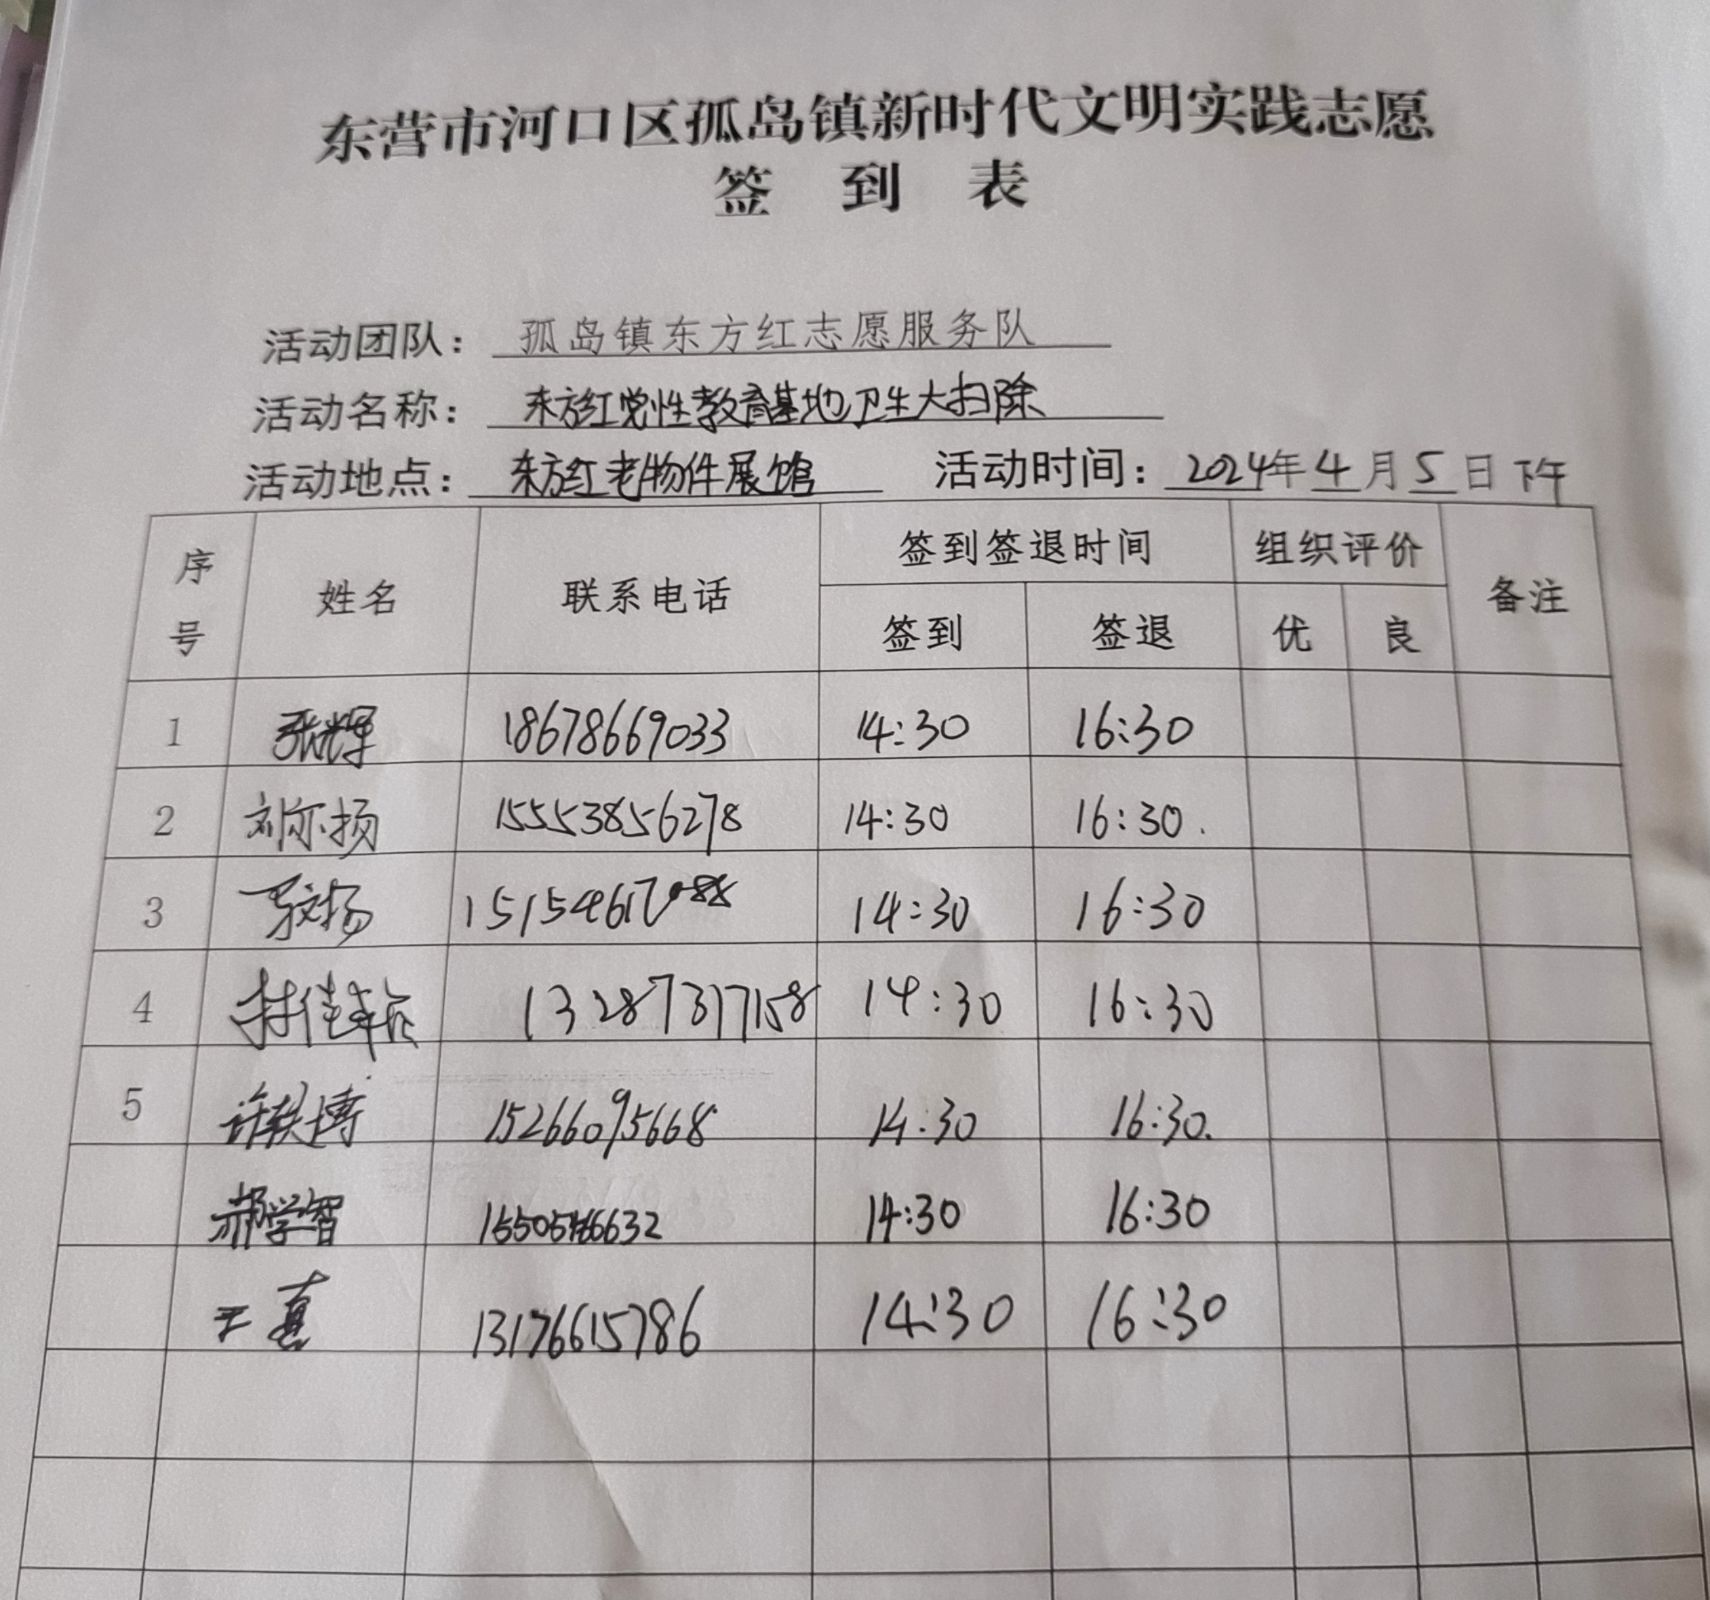 东营市河口区孤岛镇新时代文明实践志愿
签 到 表
活动团队：孤岛镇东方红志愿服务队
活动名称：东方红党性教育基地卫生大扫除
活动地点：东方红老物件展馆 活动时间：2024年4月5日下午
序号 姓名 联系电话 签到签退时间 组织评价 备注
签到 签退 优 良
1 张辉 18678669033 14:30 16:30
2 刘尔扬 15553856278 14:30 16:30.
3 14:30 16:30
4 13287317158 14:30 16:30
5 许轶博 15266095668 14:30 16:30.
郝学智 14:30 16:30
王真 13176615786 14:30 16:30